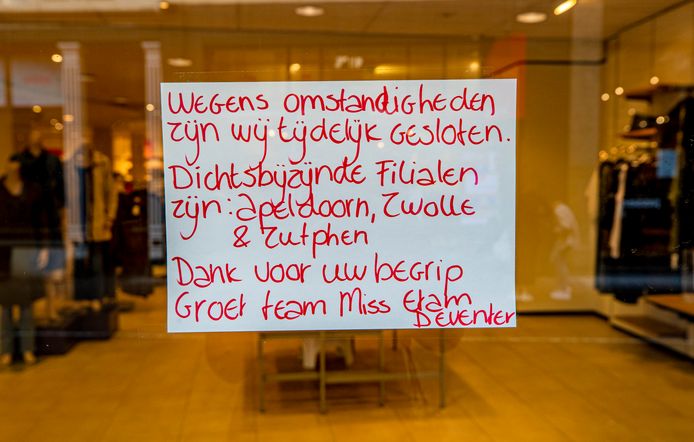 Wegens omstandigheden
zijn wij tijdelijk gesloten.
Dichtsbijzijnde Filialen
zijn: apeldoorn, Zwolle
& Zutphen
Dank voor uw begrip
Groet team Miss Etam
Deventer